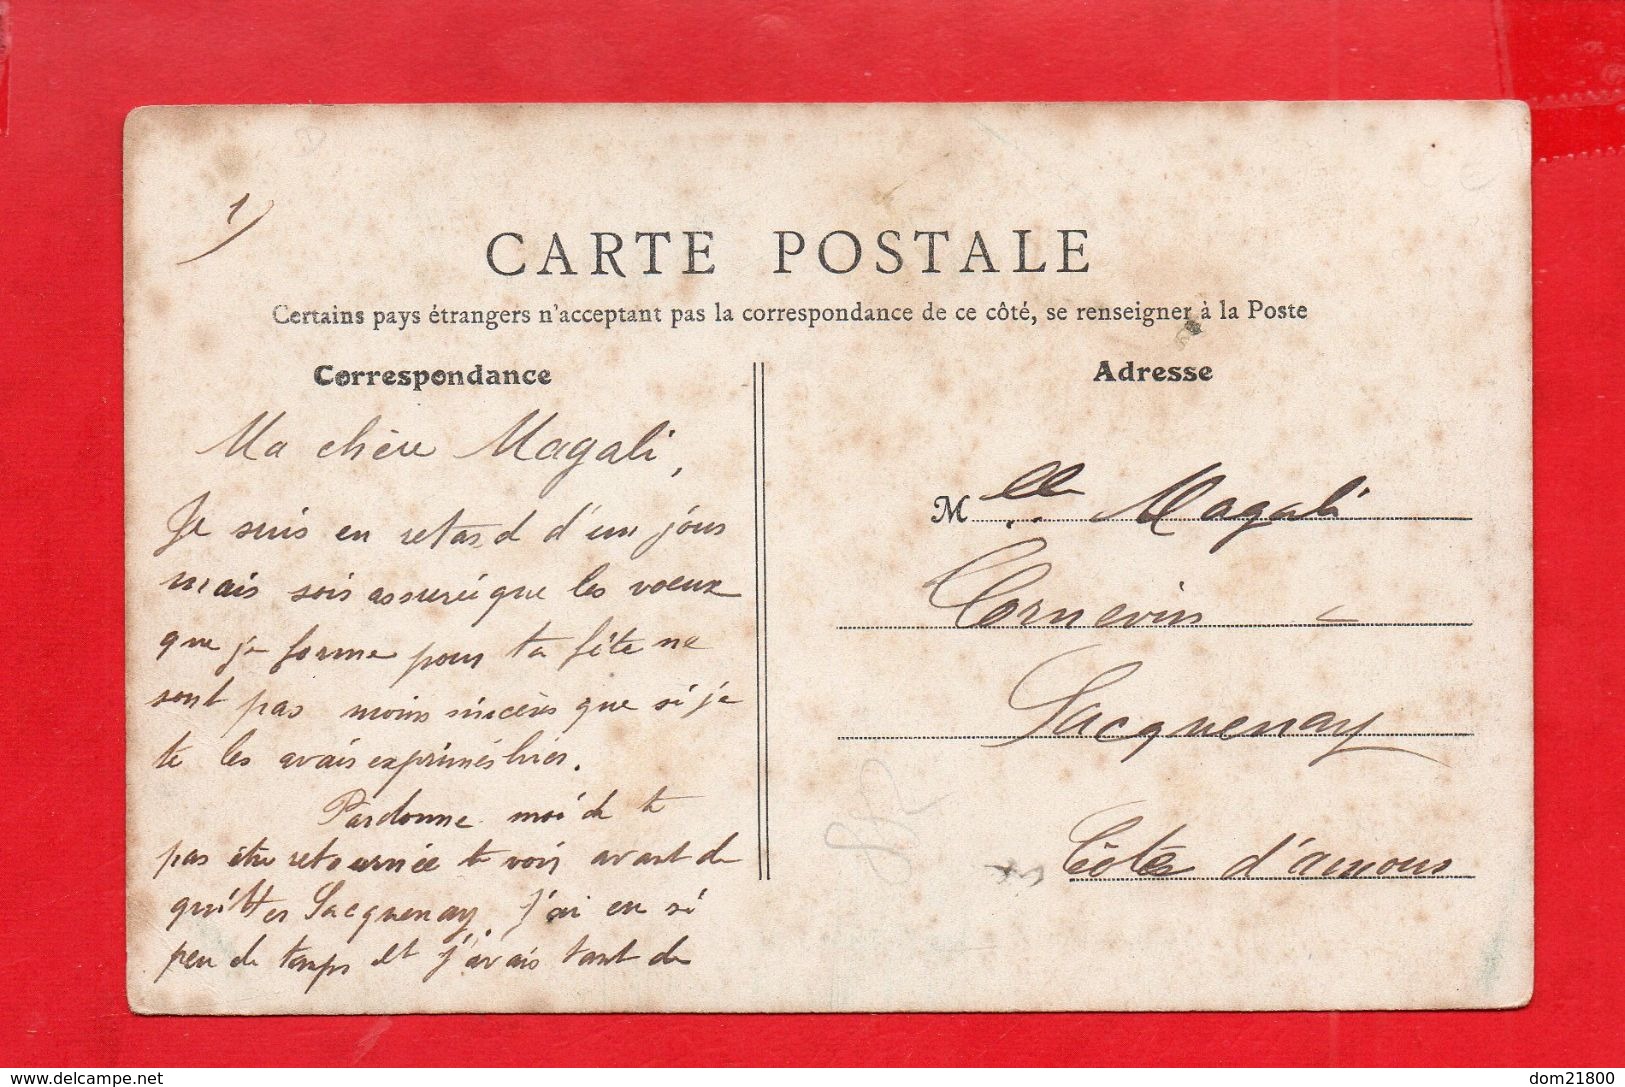 1)
CARTE POSTALE
Certains pays étrangers n'acceptant pas la correspondance de ce côté, se renseigner à la Poste
Correspondance
Adresse
Ma chère Magali,
Je suis en retard d'un jour
mais sois assurée que les voeux
que je forme pour ta fête ne
sont pas moins sincères que si je
te les avais exprimés hier.
Pardonne moi de te
pas être retournée te voir avant de
quitter Sacquenay. J'ai eu si
peu de temps et j'avais tant de
Mlle Magali
Cornevin
Sacquenay
Côte d'amour
delcampe.net
dom21800